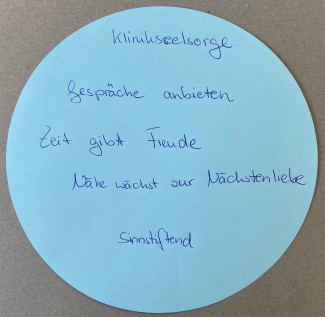 Klinikseelsorge
Gespräche anbieten
Zeit gibt Freude
Nähe wächst zur Nächstenliebe
Sinnstiftend